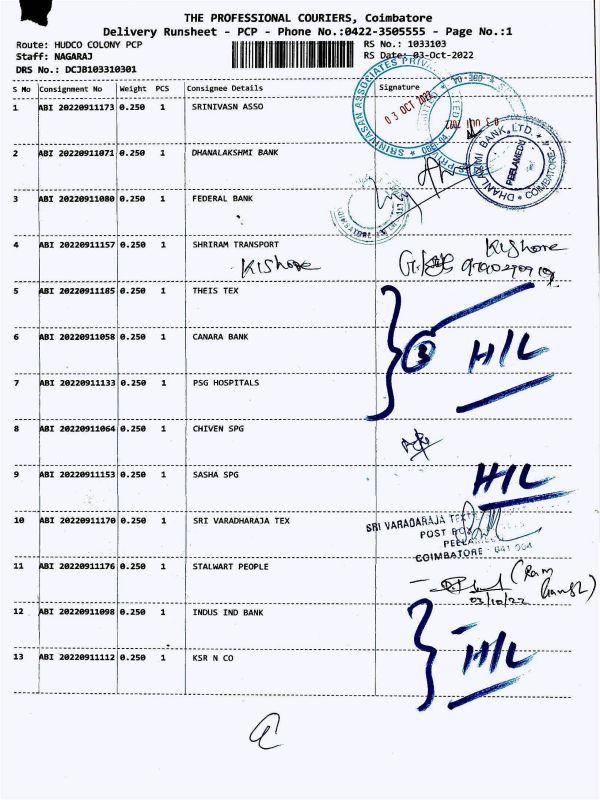 THE PROFESSIONAL COURIERS, Coimbatore
Delivery Runsheet - PCP - Phone No.:0422-3505555 - Page No.:1
Route: HUDCO COLONY PCP
Staff: NAGARAJ
DRS No.: DCJB103310301
RS No.: 1033103
RS Date: 03-Oct-2022
S No Consignment No Weight PCS Consignee Details Signature
1 ABI 20220911173 0.250 1 SRINIVASN ASSO
SRINIVASAN ASSOCIATES
03 OCT 2022
2 ABI 20220911071 0.250 1 DHANALAKSHMI BANK
DHANLAXMI BANK LTD. COIMBATORE
PEELAMEDU
3 ABI 20220911080 0.250 1 FEDERAL BANK
4 ABI 20220911157 0.250 1 SHRIRAM TRANSPORT
Kishore
Kishore
5 ABI 20220911185 0.250 1 THEIS TEX
6 ABI 20220911058 0.250 1 CANARA BANK
3 H/L
7 ABI 20220911133 0.250 1 PSG HOSPITALS
8 ABI 20220911064 0.250 1 CHIVEN SPG
9 ABI 20220911153 0.250 1 SASHA SPG
H/L
10 ABI 20220911170 0.250 1 SRI VARADHARAJA TEX
SRI VARADARAJA TEX
POST BOX
COIMBATORE - 641 004
11 ABI 20220911176 0.250 1 STALWART PEOPLE
03/10/22
12 ABI 20220911098 0.250 1 INDUS IND BANK
13 ABI 20220911112 0.250 1 KSR N CO
H/L